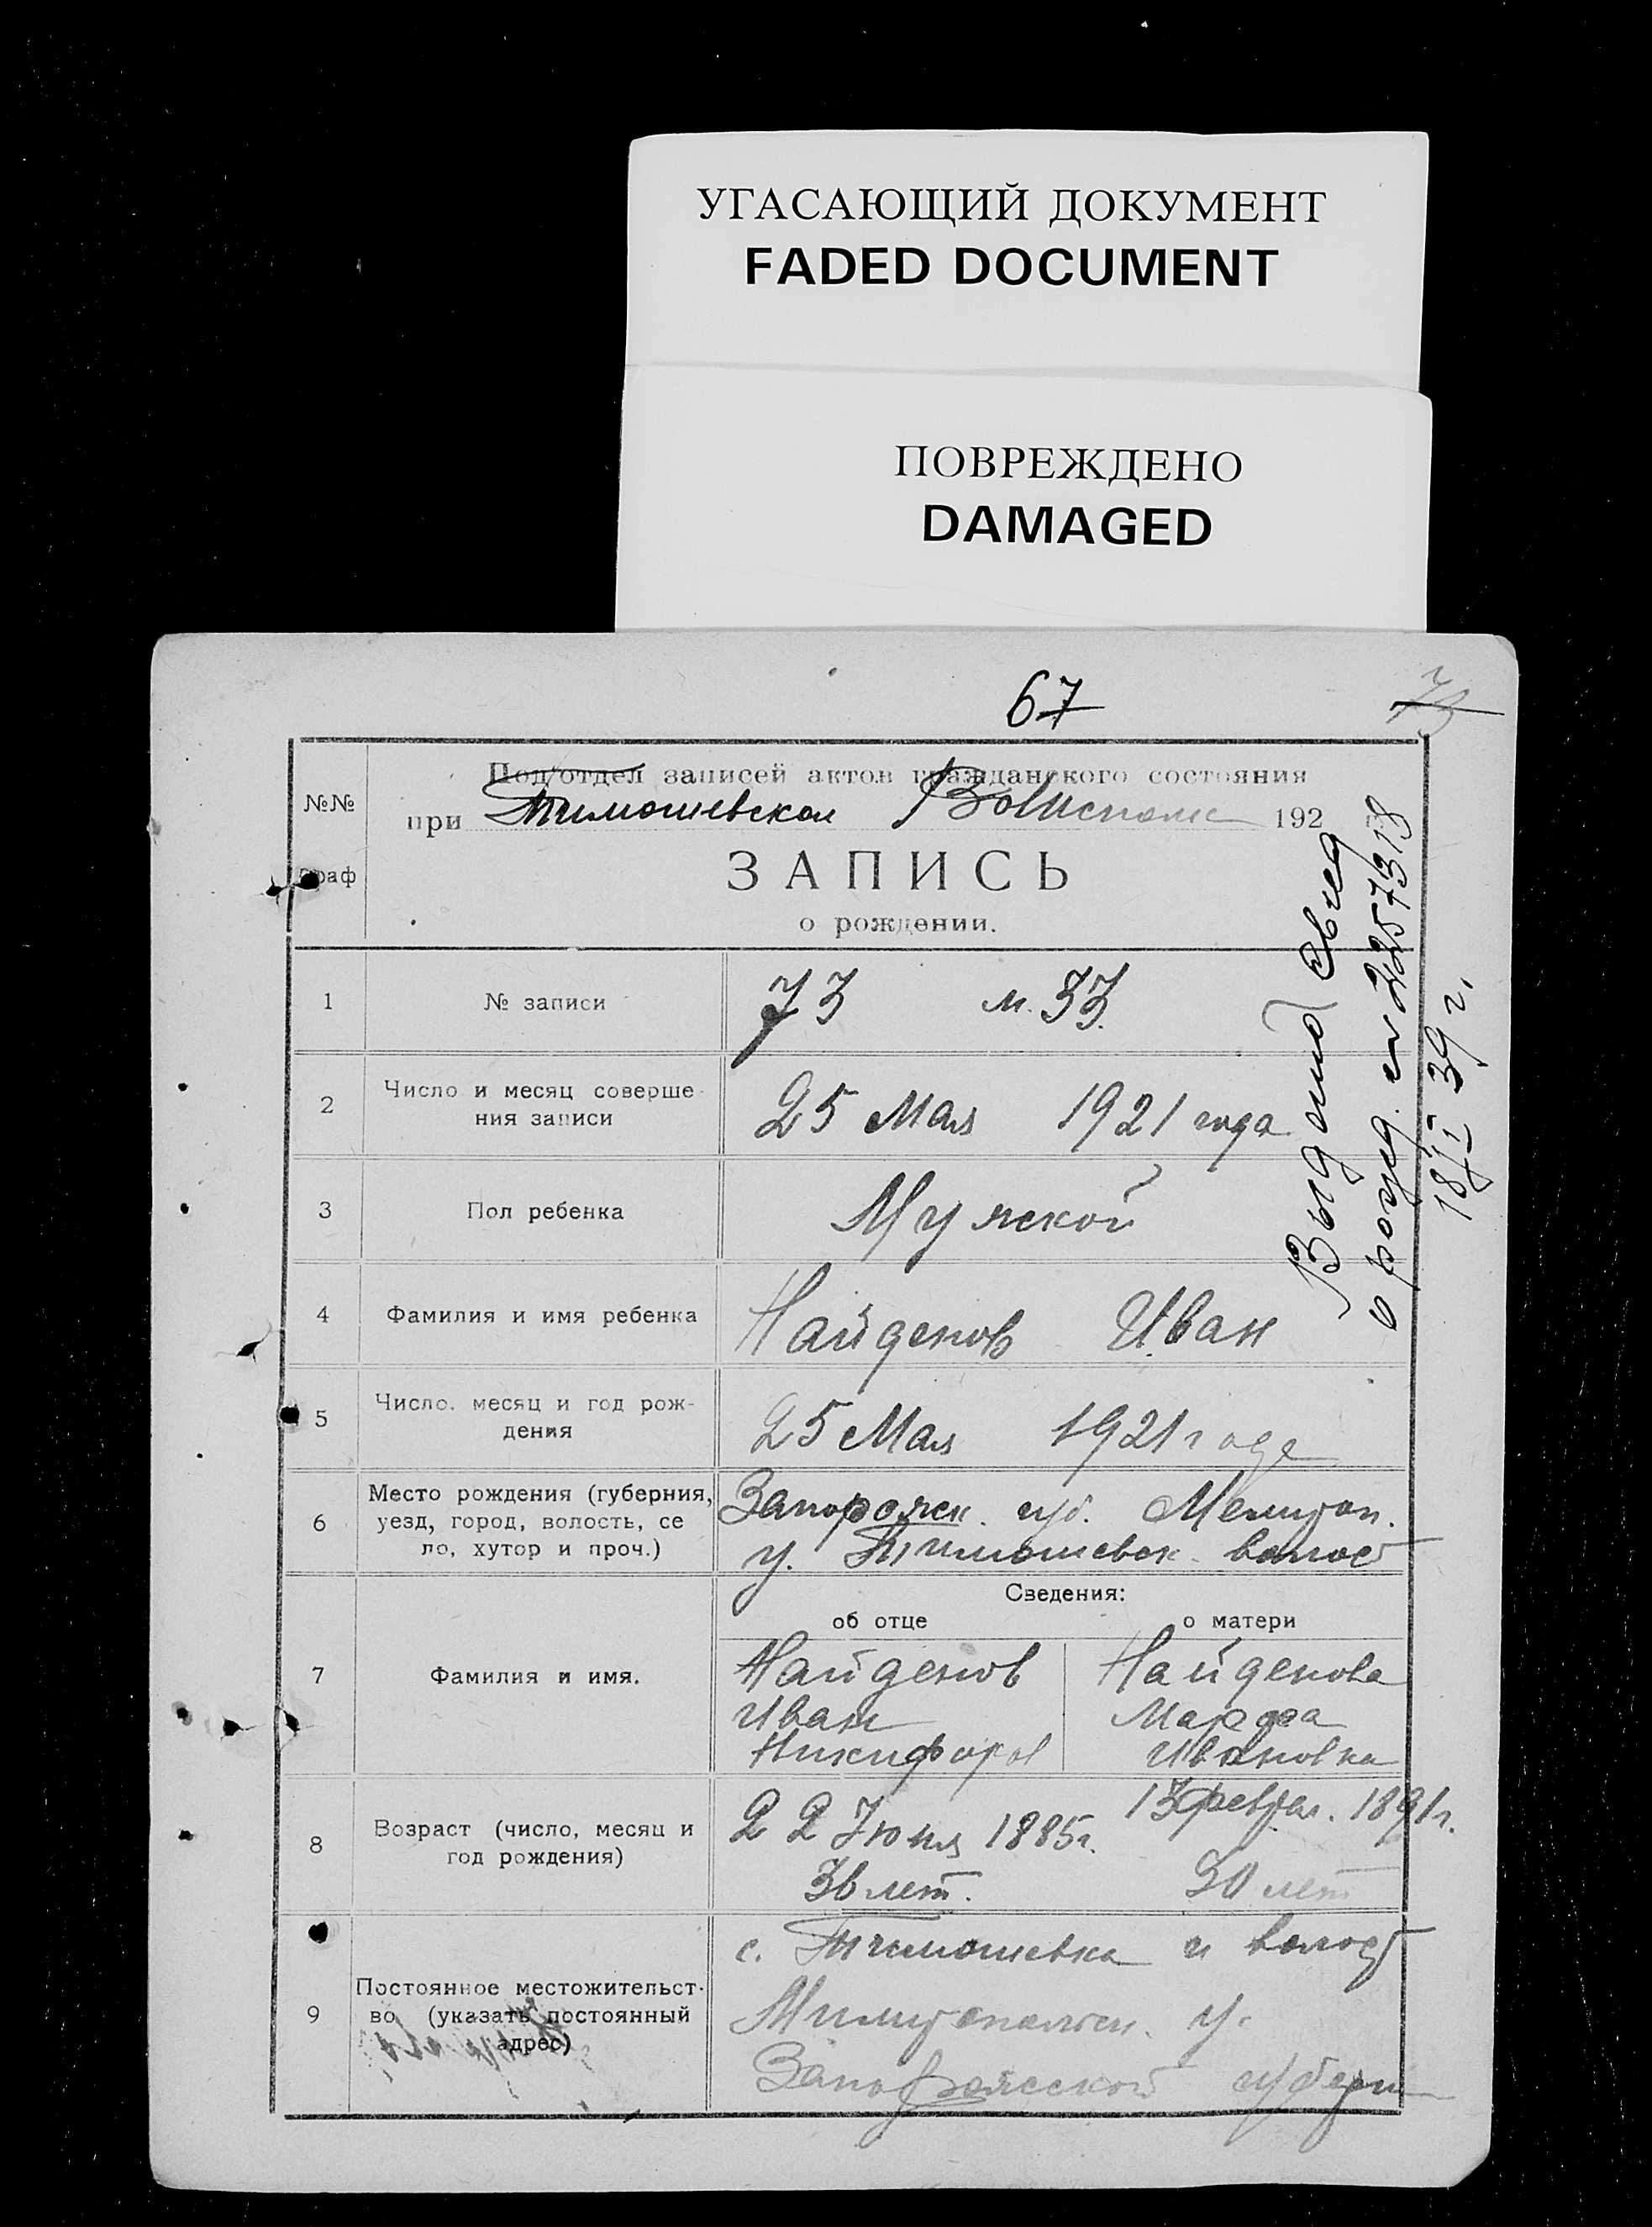 УГАСАЮЩИЙ ДОКУМЕНТ
FADED DOCUMENT
ПОВРЕЖДЕНО
DAMAGED
67
73
№№
граф
Под'отдел записей актов гражданского состояния
при Тимошевском Волисполк 192 г.
ЗАПИСЬ
о рождении.
1 № записи 73 м. 33.
2 Число и месяц соверше
ния записи
25 Мая 1921 года
3 Пол ребенка Мужской
4 Фамилия и имя ребенка Найденов Иван
5 Число, месяц и год рож-
дения
25 Мая 1921 года
6 Место рождения (губерния,
уезд, город, волость, се
ло, хутор и проч.)
Запорожск. губ. Мелитоп.
у. Тимошевск. волост
Сведения:
об отце о матери
7 Фамилия и имя.
Найденов
Иван
Никифоров
Найденова
Марфа
Ивановна
8 Возраст (число, месяц и
год рождения)
22 Июня 1885г.
36 лет.
13 феврал. 1891г.
30 лет
9 Постоянное местожительст-
во (указать постоянный
адрес)
с. Тимошевка и волост
Милитопольск. у.
Запорожсской губерн
Выдано свид
о рожд. № 2257318
18/II 39 г.